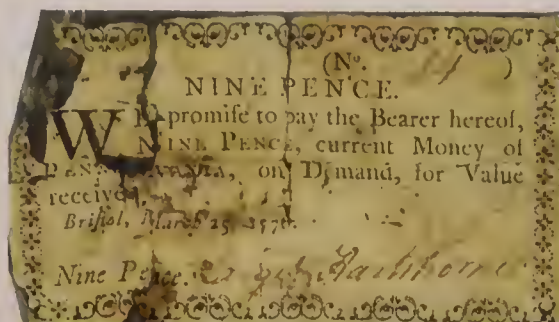 (No. )
NINE PENCE.
WE promiſe to pay the Bearer hereof,
NINE PENCE, current Money of
PENNSYLVANIA, on Demand, for Value
received.
Briſtol, March 25,
Nine Pence.